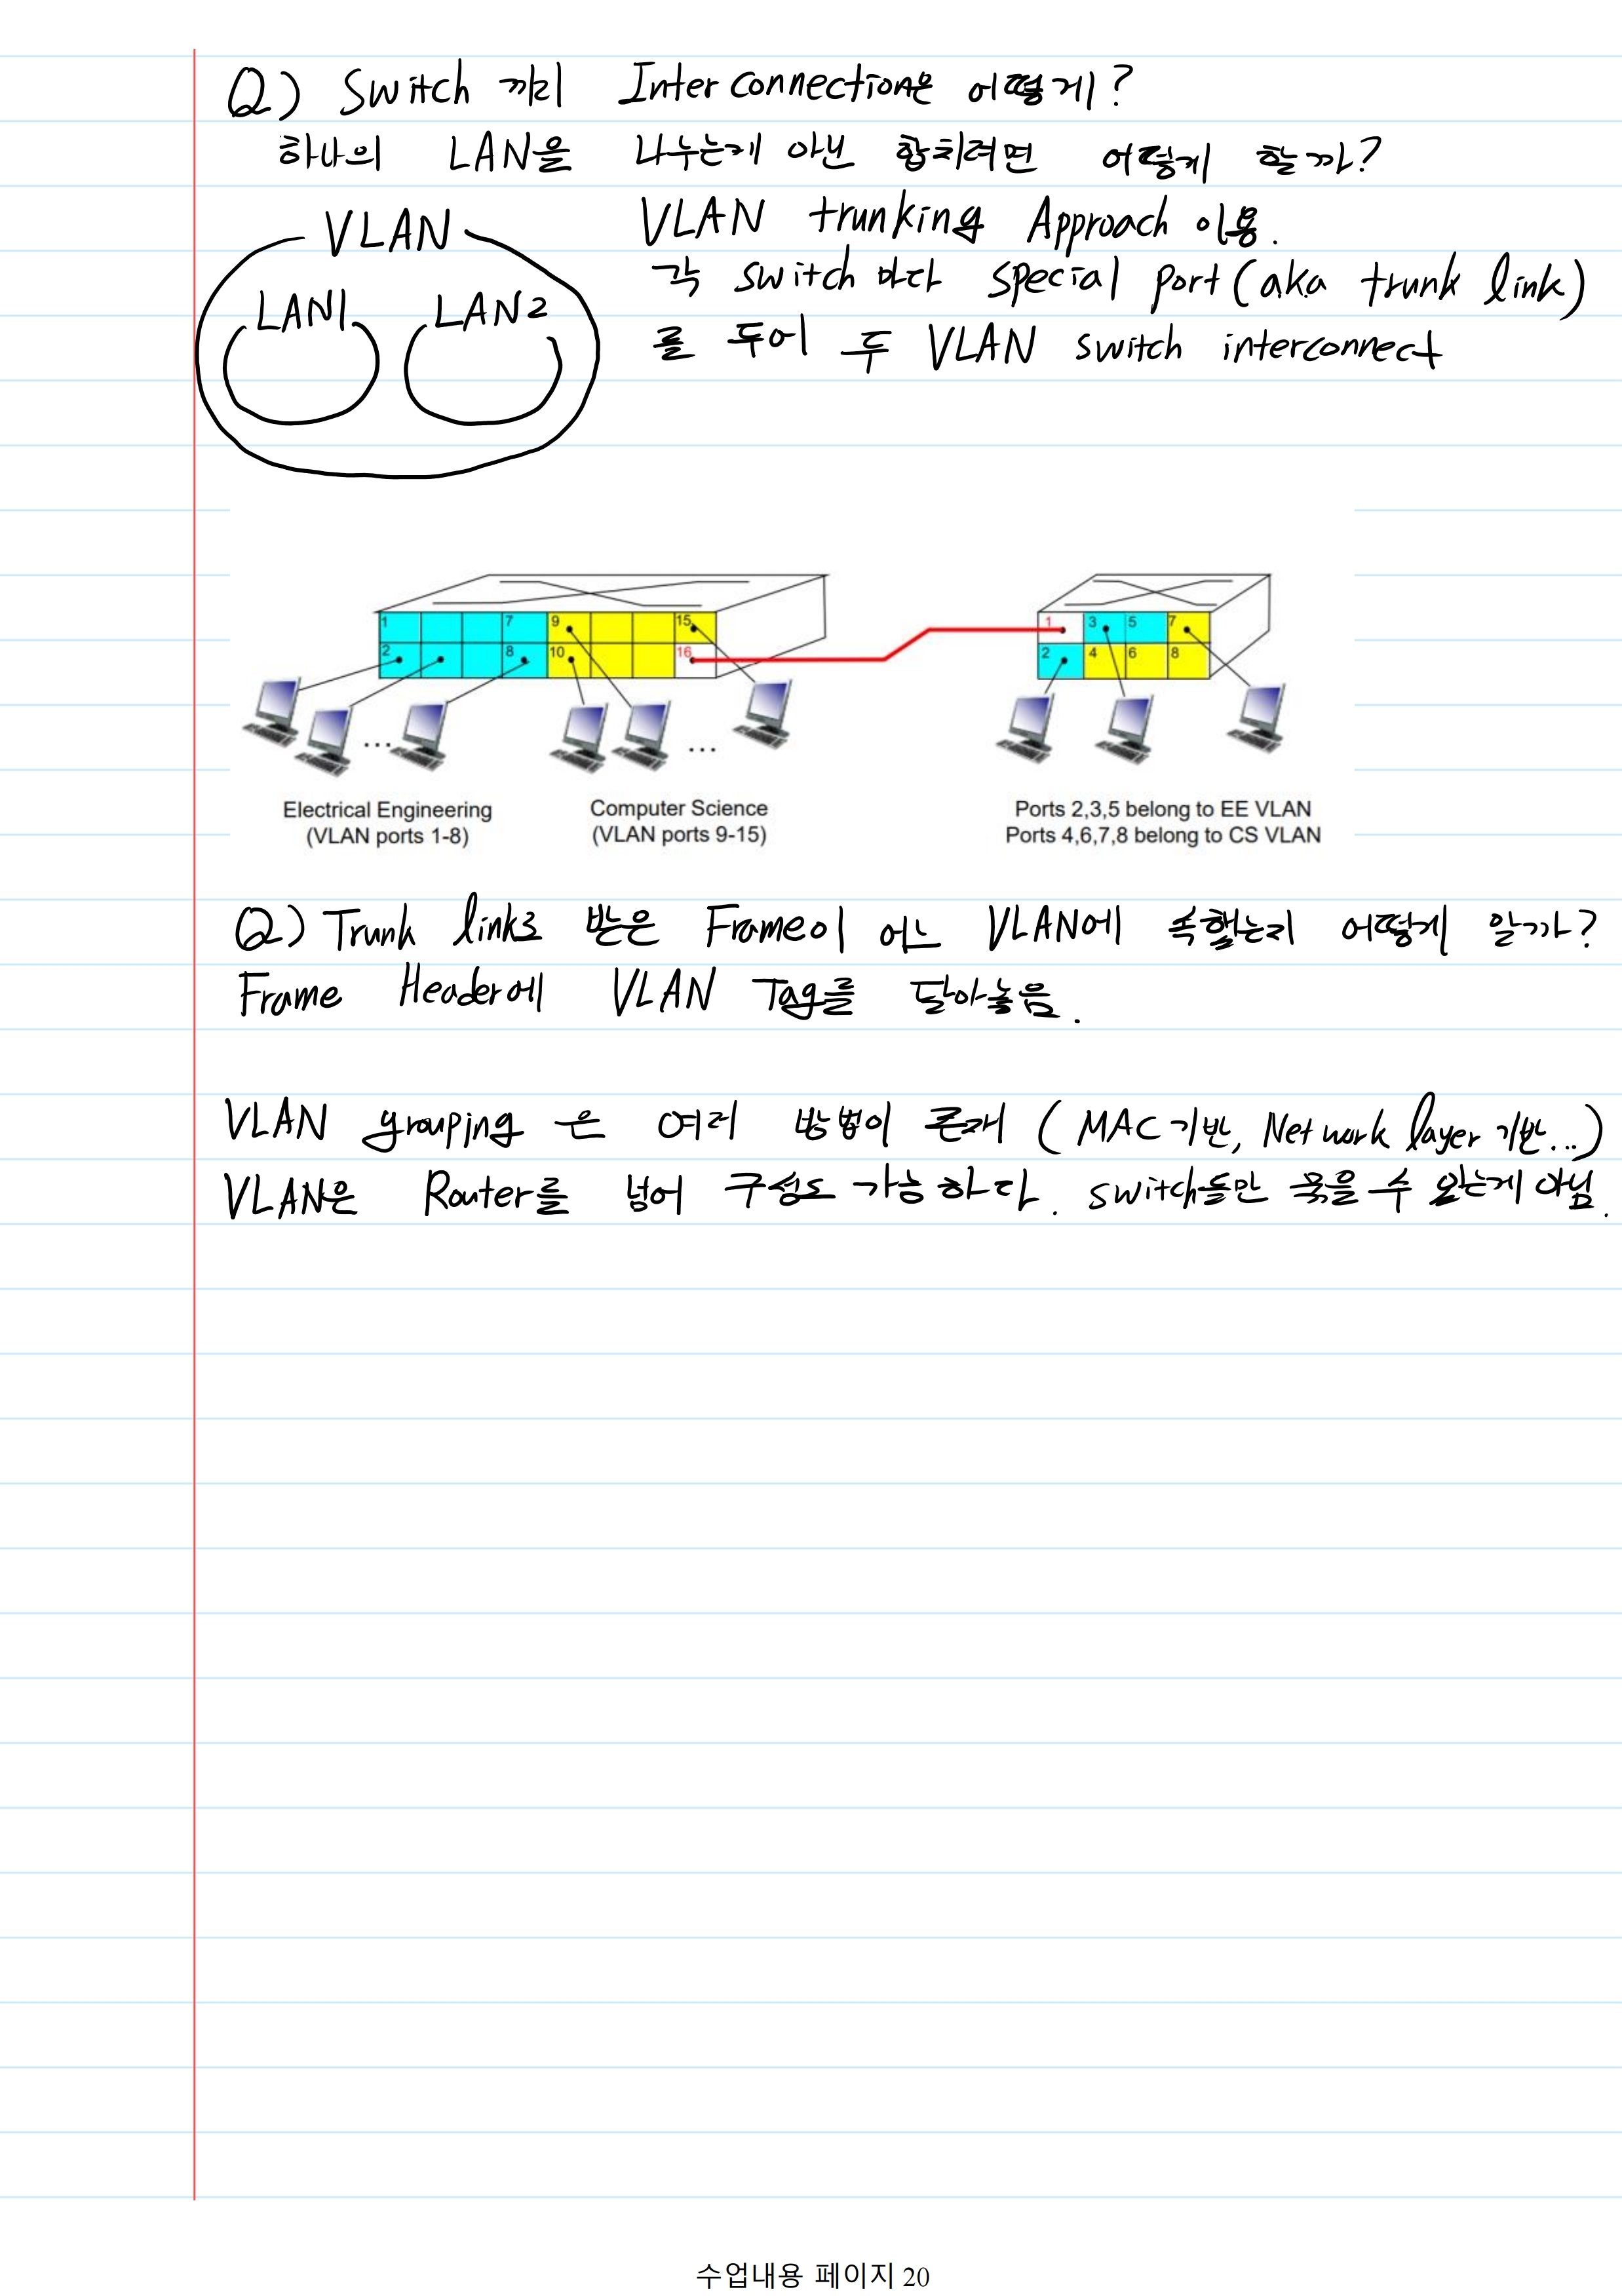 Q) Switch 끼리 Interconnection은 어떻게?
하나의 LAN을 나누는게 아닌 합치려면 어떻게 할까?
VLAN trunking Approach 이용.
각 switch 마다 special port (aka trunk link)
를 두어 두 VLAN switch interconnect
VLAN
LAN1 LAN2
1 7 9 15
2 8 10 16
1 3 5 7
2 4 6 8
... ...
Electrical Engineering
(VLAN ports 1-8)
Computer Science
(VLAN ports 9-15)
Ports 2,3,5 belong to EE VLAN
Ports 4,6,7,8 belong to CS VLAN
Q) Trunk link로 받은 Frame이 어느 VLAN에 속했는지 어떻게 알까?
Frame Header에 VLAN Tag를 달아놓음.
VLAN grouping 은 여러 방법이 존재 (MAC기반, Network layer 기반...)
VLAN은 Router를 넘어 구성도 가능하다. switch들만 묶을 수 있는게 아님.
수업내용 페이지 20